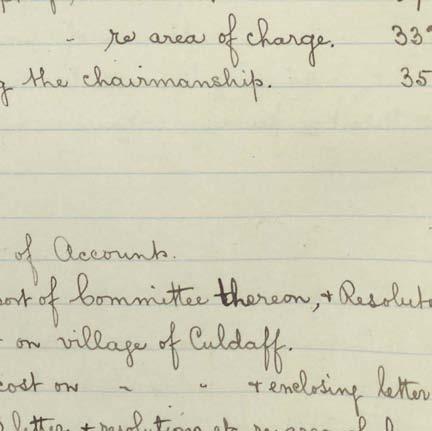 - re area of charge. 33
the chairmanship. 35
of Accounts.
of Committee thereon, + Resolut
on village of Culdaff.
cost on " " + enclosing letter
letter + resolution etc re area of